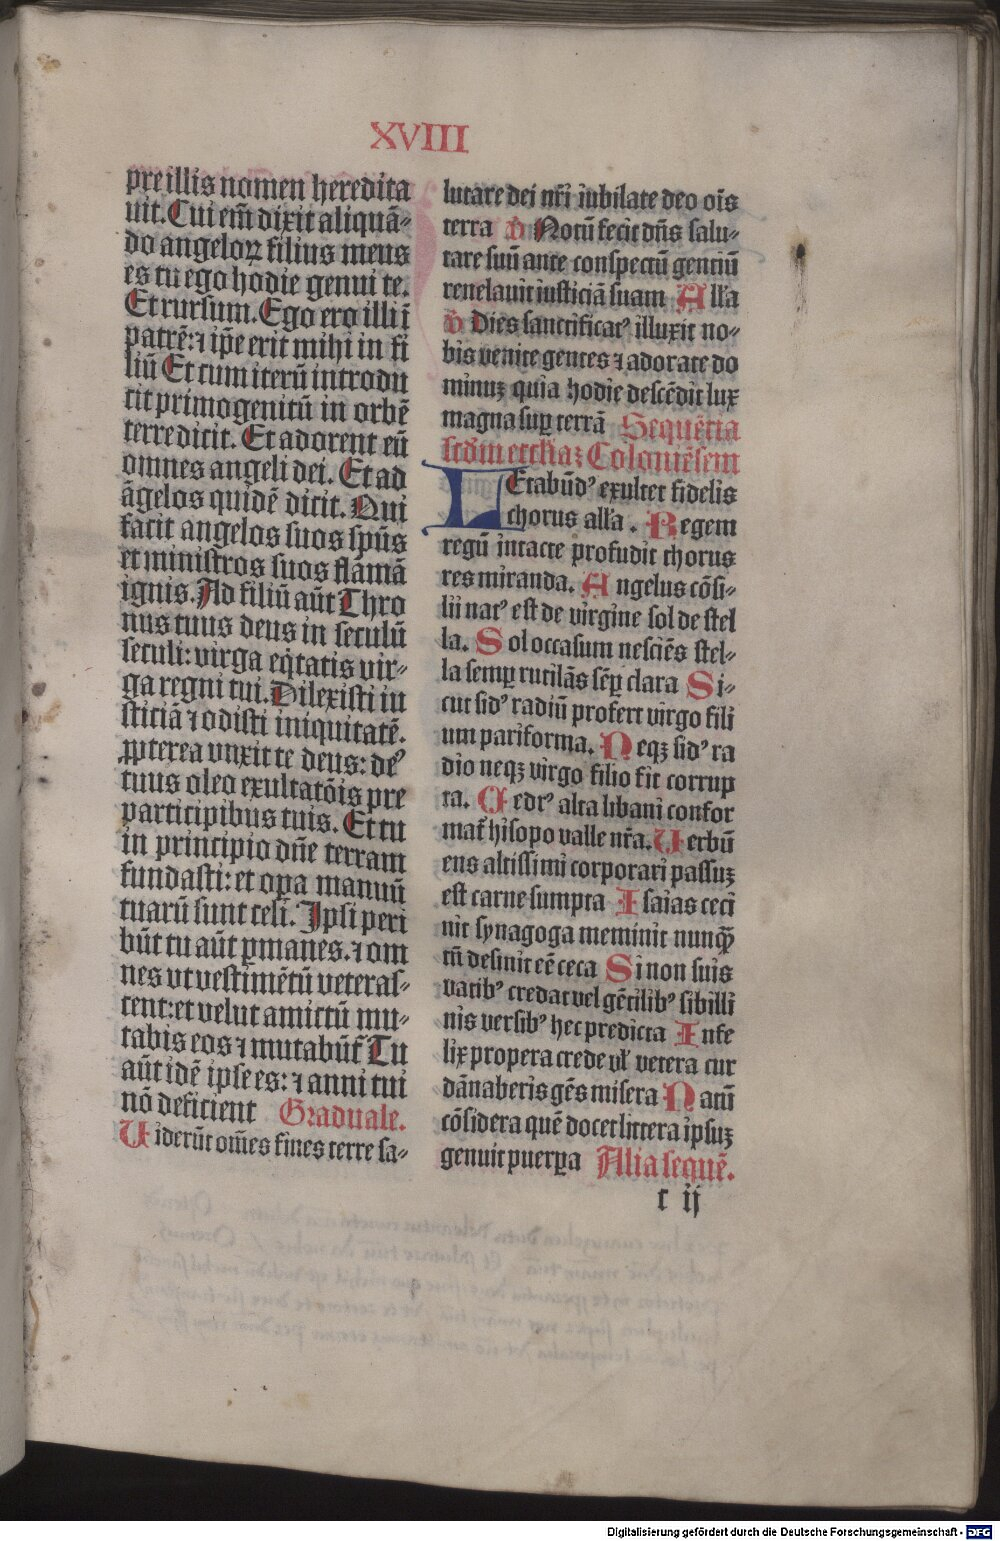 XVIII
pre illis nomen heredita
uit. Cui em̄ dixit aliquā-
do angeloꝝ filius meus
es tu ego hodie genui te.
Et rursum. Ego ero illi i
patrē: ⁊ ip̄e erit mihi in fi
liū Et cum iterū introdu
cit primogenitū in orbē
terre dicit. Et adorent eū
omnes angeli dei. Et ad
āgelos quidē dicit. Qui
facit angelos suos sp̄us
et ministros suos flāmā
ignis. Ad filiū aūt Thro
nus tuus deus in seculū
seculi: virga eq̄tatis vir-
ga regni tui. Dilexisti iu
sticiā ⁊ odisti iniquitatē.
ꝓpterea vnxit te deus: deꝰ
tuus oleo exultatōis pre
participibus tuis. Et tu
in principio dn̄e terram
fundasti: et oꝑa manuū
tuarū sunt celi. Ipsi peri
būt tu aūt ꝑmanes. ⁊ om
nes vt vestimētū veteras-
cent: et velut amictū mu-
tabis eos ⁊ mutabūt̄ Tu
aūt idē ipse es: ⁊ anni tui
nō deficient Graduale.
Uiderūt om̄es fines terre sa-
lutare dei nr̄i iubilate deo oīs
terra ꝟ Notū fecit dn̄s salu-
tare suū ante conspectū gentiū
reuelauit iusticiā suam All'a
ꝟ Dies sanctificatꝰ illuxit no-
bis venite gentes ⁊ adorate do
minuꝫ quia hodie descēdit lux
magna suꝑ terrā Sequētia
scd'm eccl'iaꝫ Coloniēsem
LEtabūdꝰ exultet fidelis
chorus all'a. Regem
regū intacte profudit thorus
res miranda. Angelus cōsi-
lii natꝰ est de virgine sol de stel
la. Sol occasum nesciēs stel-
la semꝑ rutilās sēꝑ clara Si-
cut sidꝰ radiū profert virgo fili
um pari forma. Neqꝫ sidꝰ ra
dio neqꝫ virgo filio fit corrup
ta. Cedrꝰ alta libani confor
mat̄ hisopo valle nr̄a. Uerbū
ens altissimi corporari passuꝫ
est carne sumpta Isaias ceci
nit synagoga meminit nunq̄
tn̄ desinit eē ceca Si non suis
vatibꝰ credat vel gētilibꝰ sibilli
nis versibꝰ hec predicta Infe
lix propera crede vl' vetera cur
dānaberis gēs misera Natū
cōsidera quē docet littera ipsuꝫ
genuit puerꝑa Alia sequē.
c ij
Digitalisierung gefördert durch die Deutsche Forschungsgemeinschaft - DFG